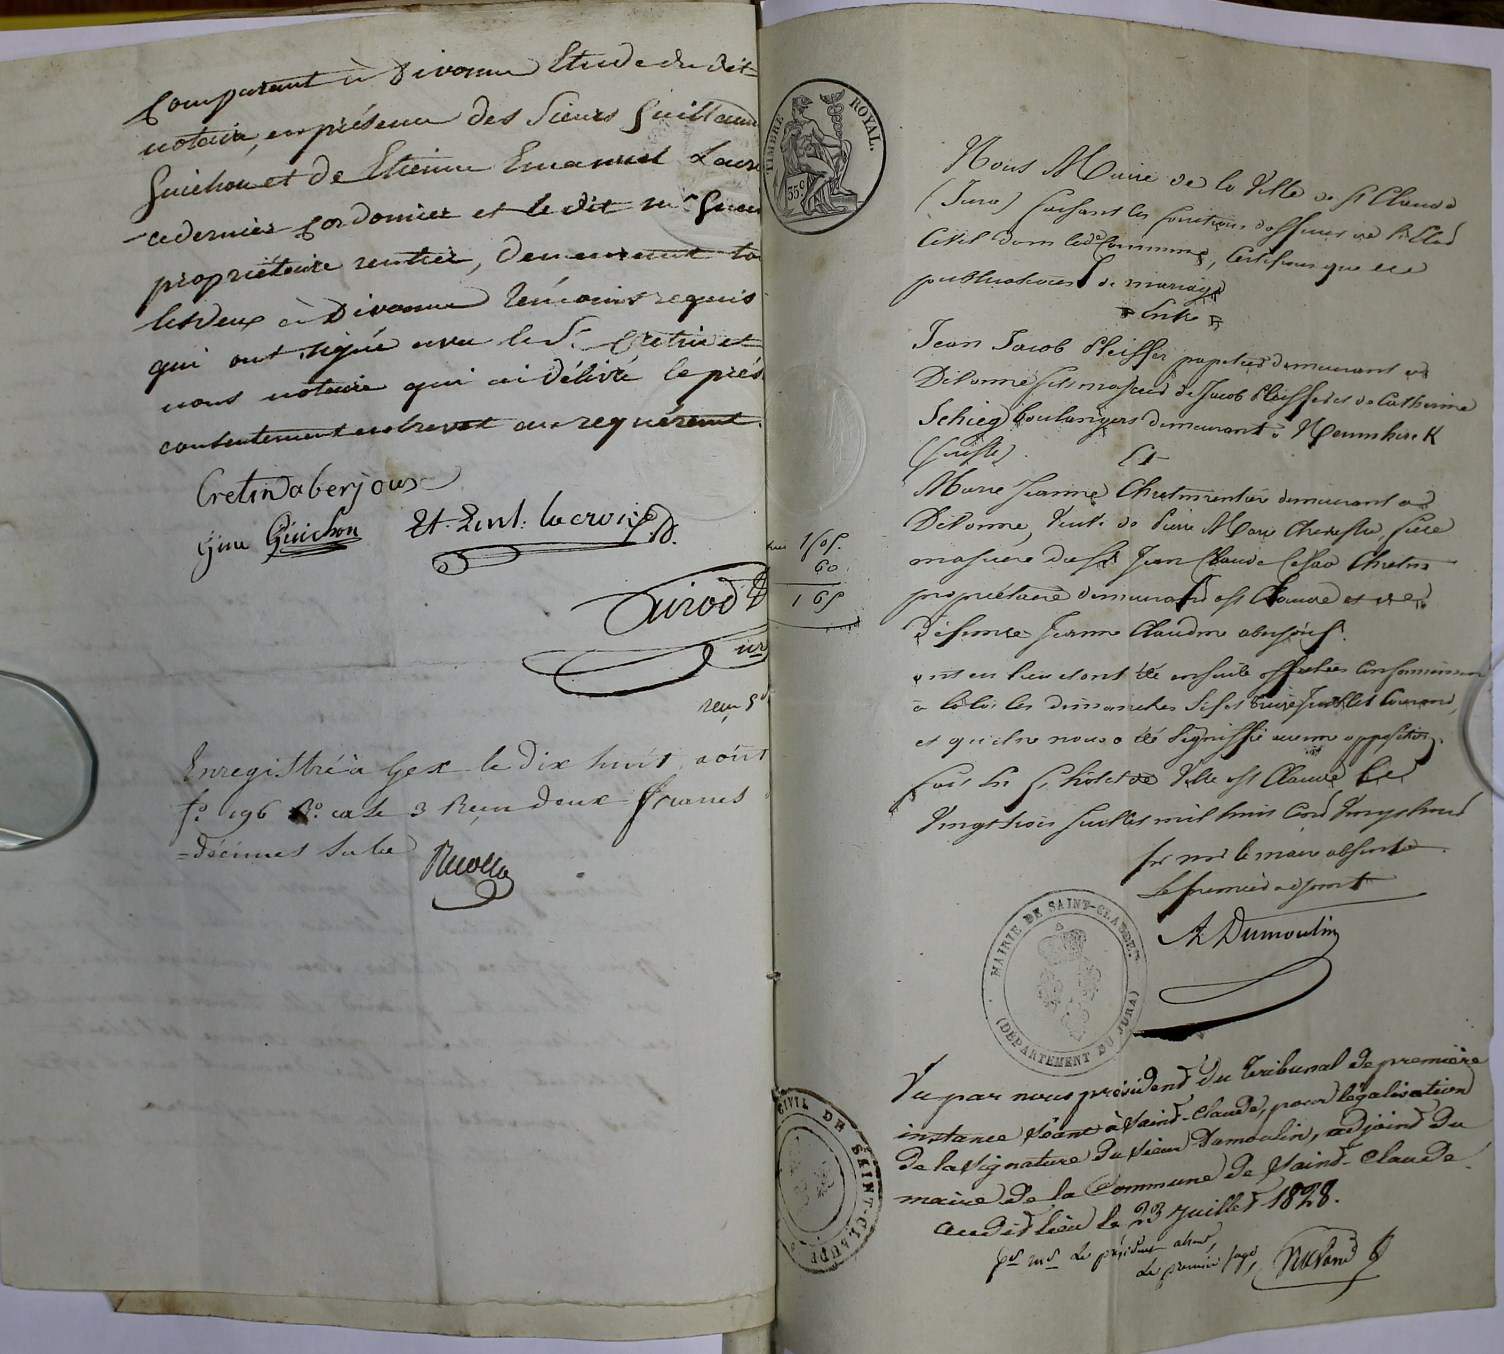 Comparant à Divonne Etude du dit
notaire, en présence des Sieurs Guillaume
Guichon et de Etienne Emanuel Lacro
ce dernier Cordonnier et le dit sr Guic
propriétaire rentier, demeurant to
les deux à Divonne témoins requis
qui ont signé avec le Sr Cretin et
nous notaire qui ai délivré le prés
consentement en brevet au requérant.
Cretin aberjoux
Gme Guichon Et. Eml. lacroix
Girod
nre
reçu
Enregistré à Gex le dix huit août
fo 196 Ro case 3 Reçu deux francs
=décimes
TIMBRE ROYAL.
35 c
Nous Maire de la Ville de St Claude
(Jura) faisant les fonctions d'officier de l'Etat
Civil dans ladte Commune, Certifions que les
publications de mariage
Entre
Jean Jacob Pfeiffer papetier demeurant à
Divonne fils majeur de Jacob Pfeiffer et de Catherine
Schieg boulangers demeurant à Neunkirck
(Suisse).
Et
Marie Jeanne Chretin rentière demeurant à
Divonne, Veuve de Pierre Marie, fille
majeure du Sr Jean Claude César Chretin
propriétaire demeurant à St Claude et de
défunte Jeanne Claudine abrejoux.
ont eu lieu et ont été ensuite affichées conformément
à la loi les dimanches Six et treize Juillet Courant,
et qu'il ne nous a été Signiffié aucune opposition.
fait en l'hôtel de Ville à St Claude le
Vingt trois Juillet mil huit Cent Vingt huit
pr Mr le maire absent
Le premier adjoint
Dumoulin
1 05.
60
1 65
MAIRIE DE SAINT-CLAUDE.
(DÉPARTEMENT DU JURA)
Vu par nous président du Tribunal de première
instance séant à Saint-Claude, pour légalisation
de la signature du sieur Dumoulin, adjoint du
maire de la Commune de Saint-Claude.
audit lieu le 23 Juillet 1828.
pr Mr Le président absent,
Le premier juge,
CIVIL DE SAINT-CLAUDE